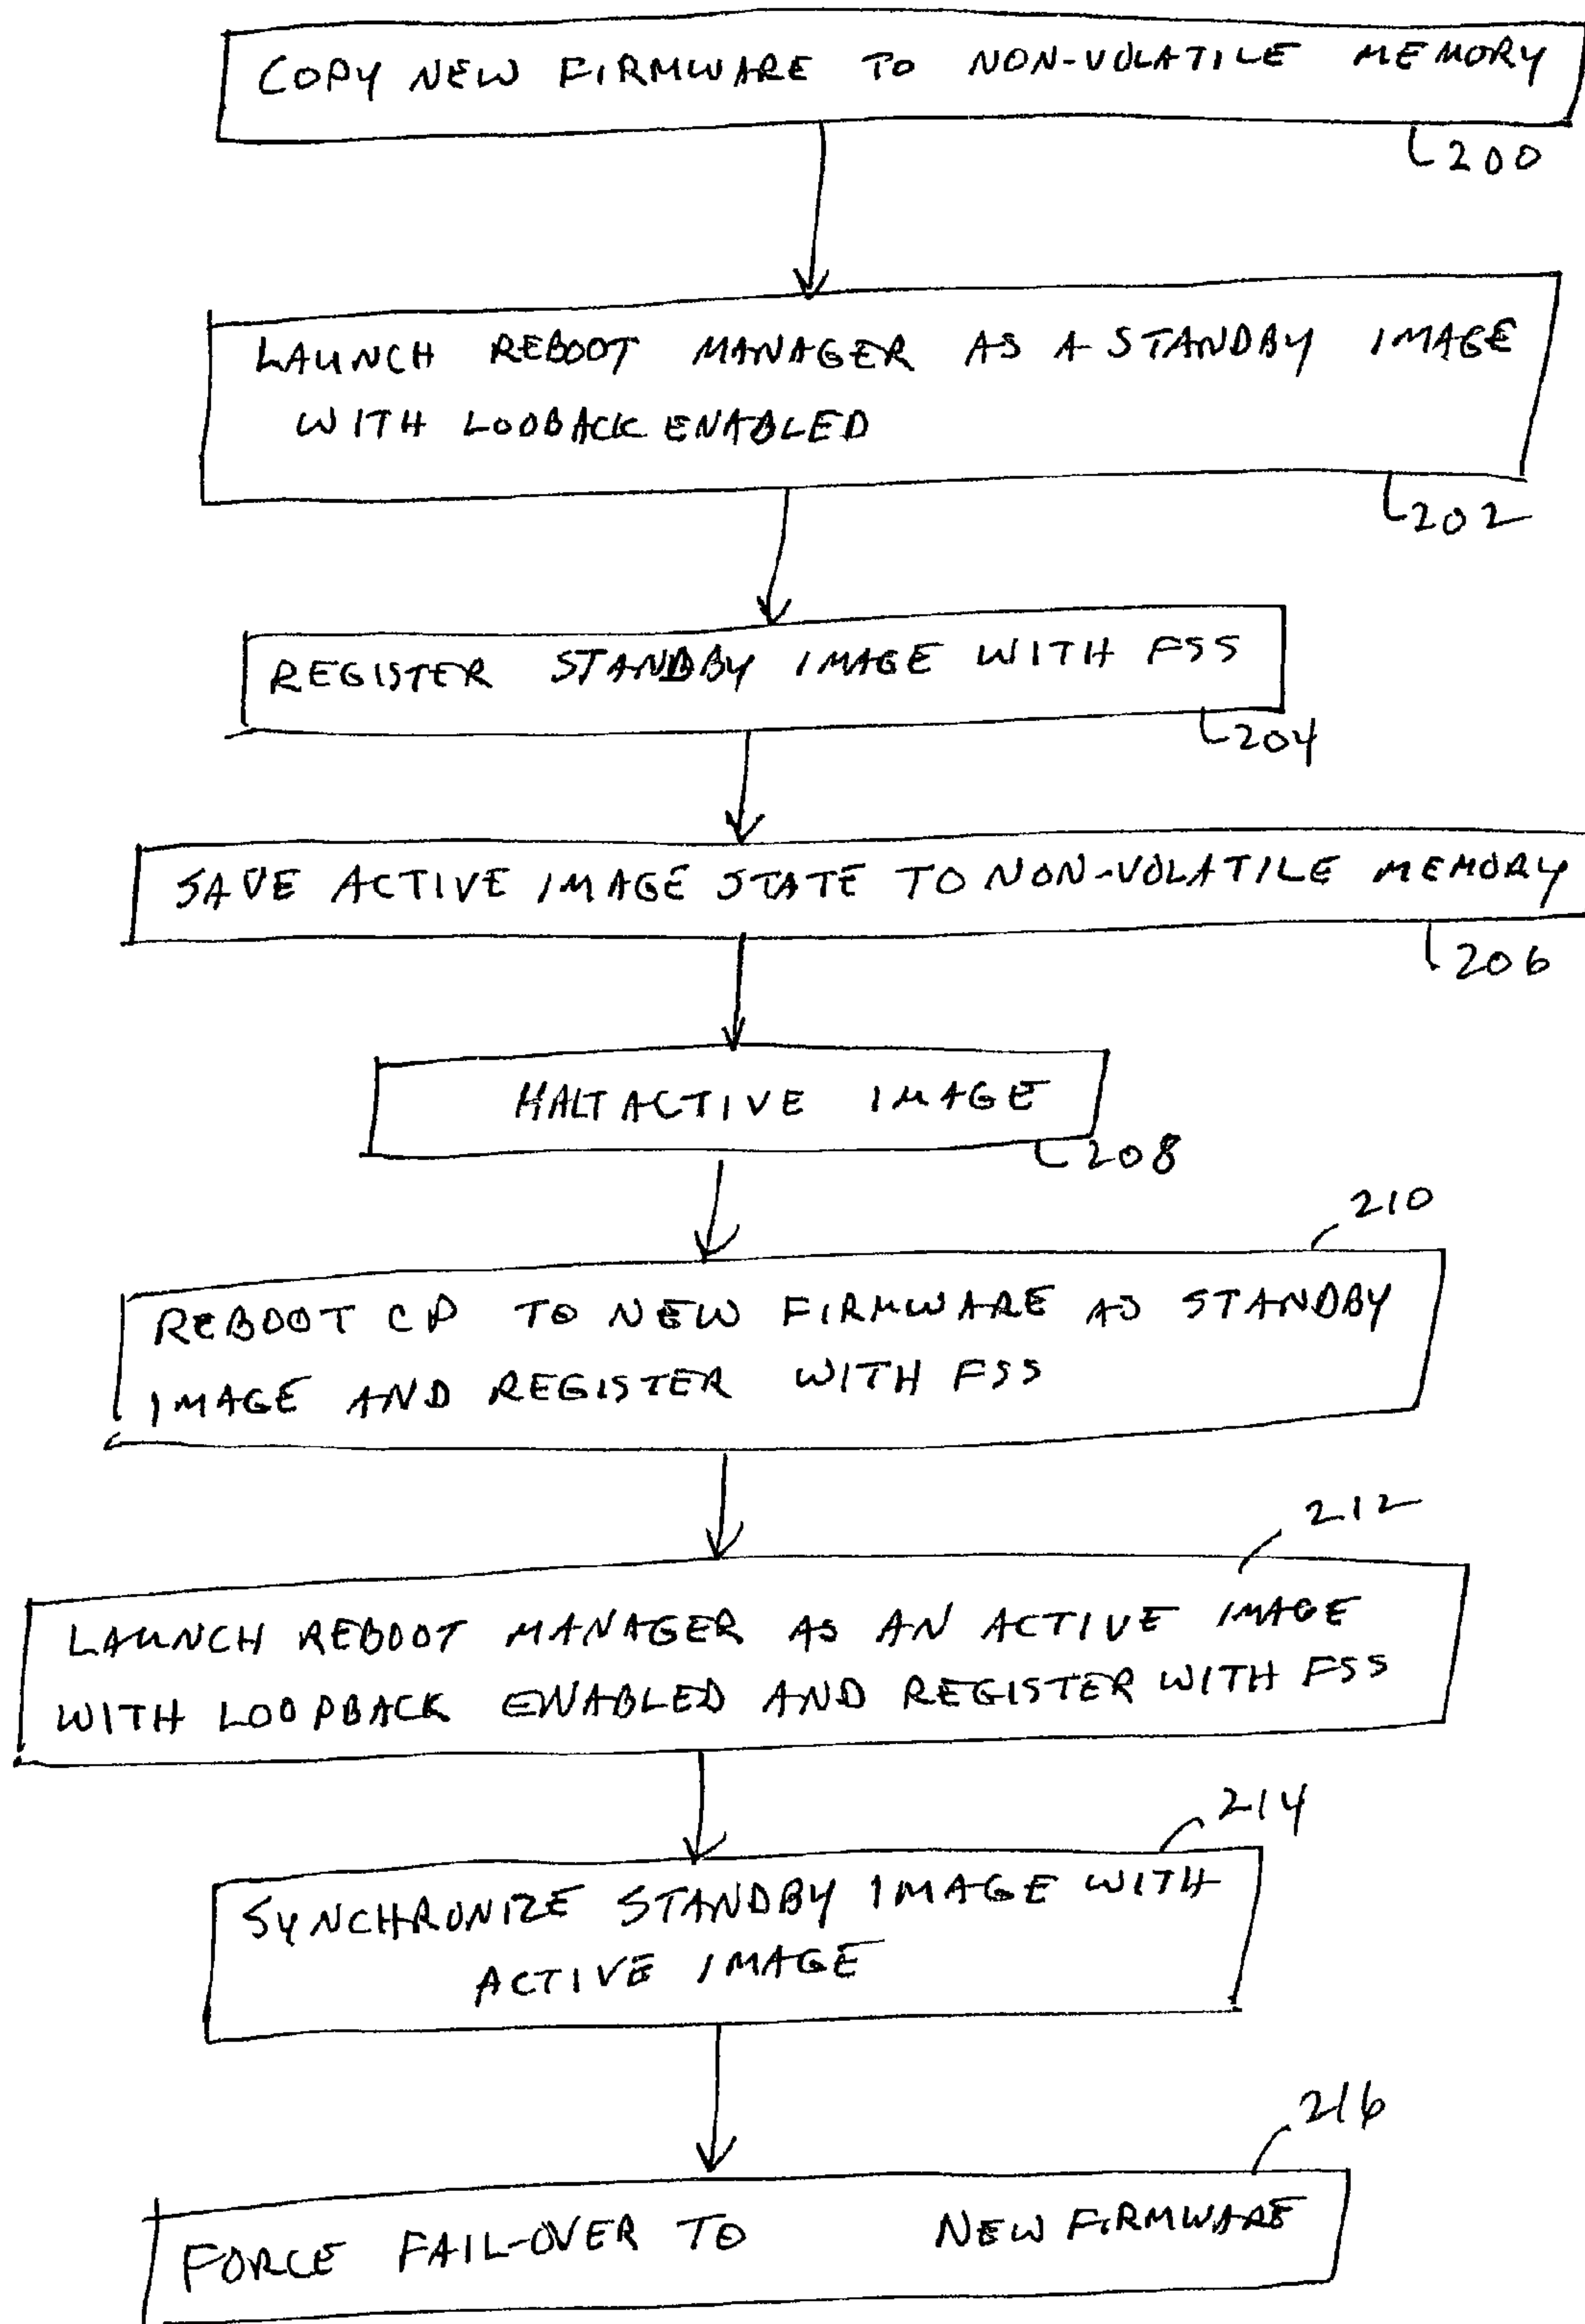 COPY NEW FIRMWARE TO NON-VOLATILE MEMORY
200
LAUNCH REBOOT MANAGER AS A STANDBY IMAGE
WITH LOOBACK ENABLED
202
REGISTER STANDBY IMAGE WITH FSS
204
SAVE ACTIVE IMAGE STATE TO NON-VOLATILE MEMORY
206
HALT ACTIVE IMAGE
208
210
REBOOT CP TO NEW FIRMWARE AS STANDBY
IMAGE AND REGISTER WITH FSS
212
LAUNCH REBOOT MANAGER AS AN ACTIVE IMAGE
WITH LOOPBACK ENABLED AND REGISTER WITH FSS
214
SYNCHRONIZE STANDBY IMAGE WITH
ACTIVE IMAGE
216
FORCE FAIL-OVER TO NEW FIRMWARE